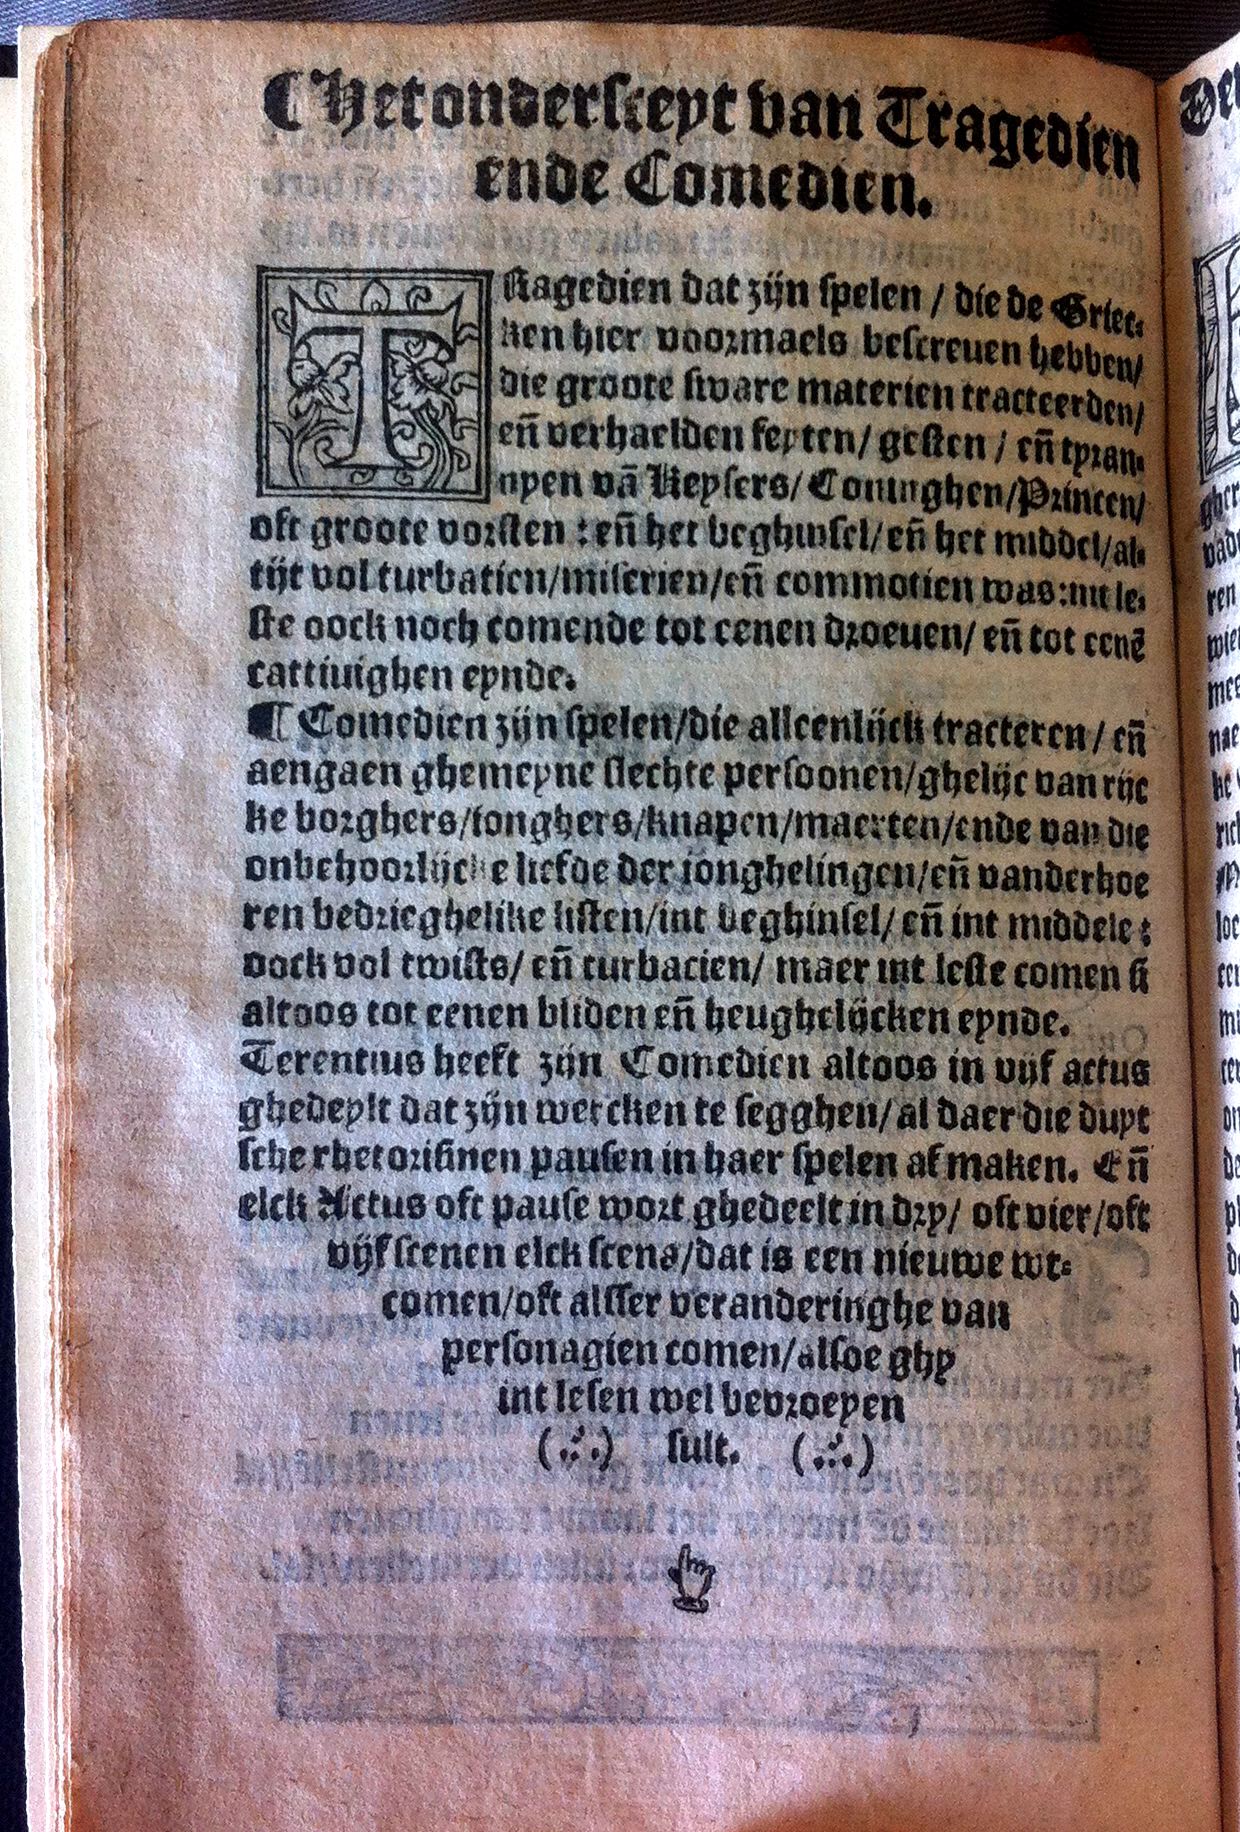 ¶ Het ondersceyt van Tragedien
ende Comedien.
TRagedien dat zijn spelen / die de Griec⸗
ken hier voormaels bescreuen hebben/
die groote sware materien tracteerden/
eñ verhaelden feyten/ gesten / eñ tyran⸗
nyen vã Keysers/ Coninghen/Princen/
oft groote vorsten : eñ het beghinsel/ eñ het middel/al⸗
tijt vol turbatien/miserien/eñ commotien was:int le⸗
ste oock noch comende tot eenen droeuen/ eñ tot eenẽ
cattiuighen eynde.
¶ Comedien zijn spelen/die alleenlijck tracteren / eñ
aengaen ghemeyne slechte persoonen/ghelijc van rijc
ke borghers/ionghers/knapen/maerten/ende van die
onbehoorlijcke liefde der ionghelingen/eñ vanderhoe
ren bedrieghelike listen/int beghinsel/ eñ int middele :
oock vol twists/ eñ turbacien/ maer int leste comen si
altoos tot eenen bliden eñ heughelijcken eynde.
Terentius heeft zijn Comedien altoos in vijf actus
ghedeylt dat zijn wercken te segghen/ al daer die duyt
sche rhetorisinen pausen in haer spelen af maken. Eñ
elck Actus oft pause wort ghedeelt in dry/ oft vier/oft
vijf scenen elck scena/dat is een nieuwe wt⸗
comen/oft alsser veranderinghe van
personagien comen/alsoe ghy
int lesen wel bevroeyen
(∴) sult. (∴)